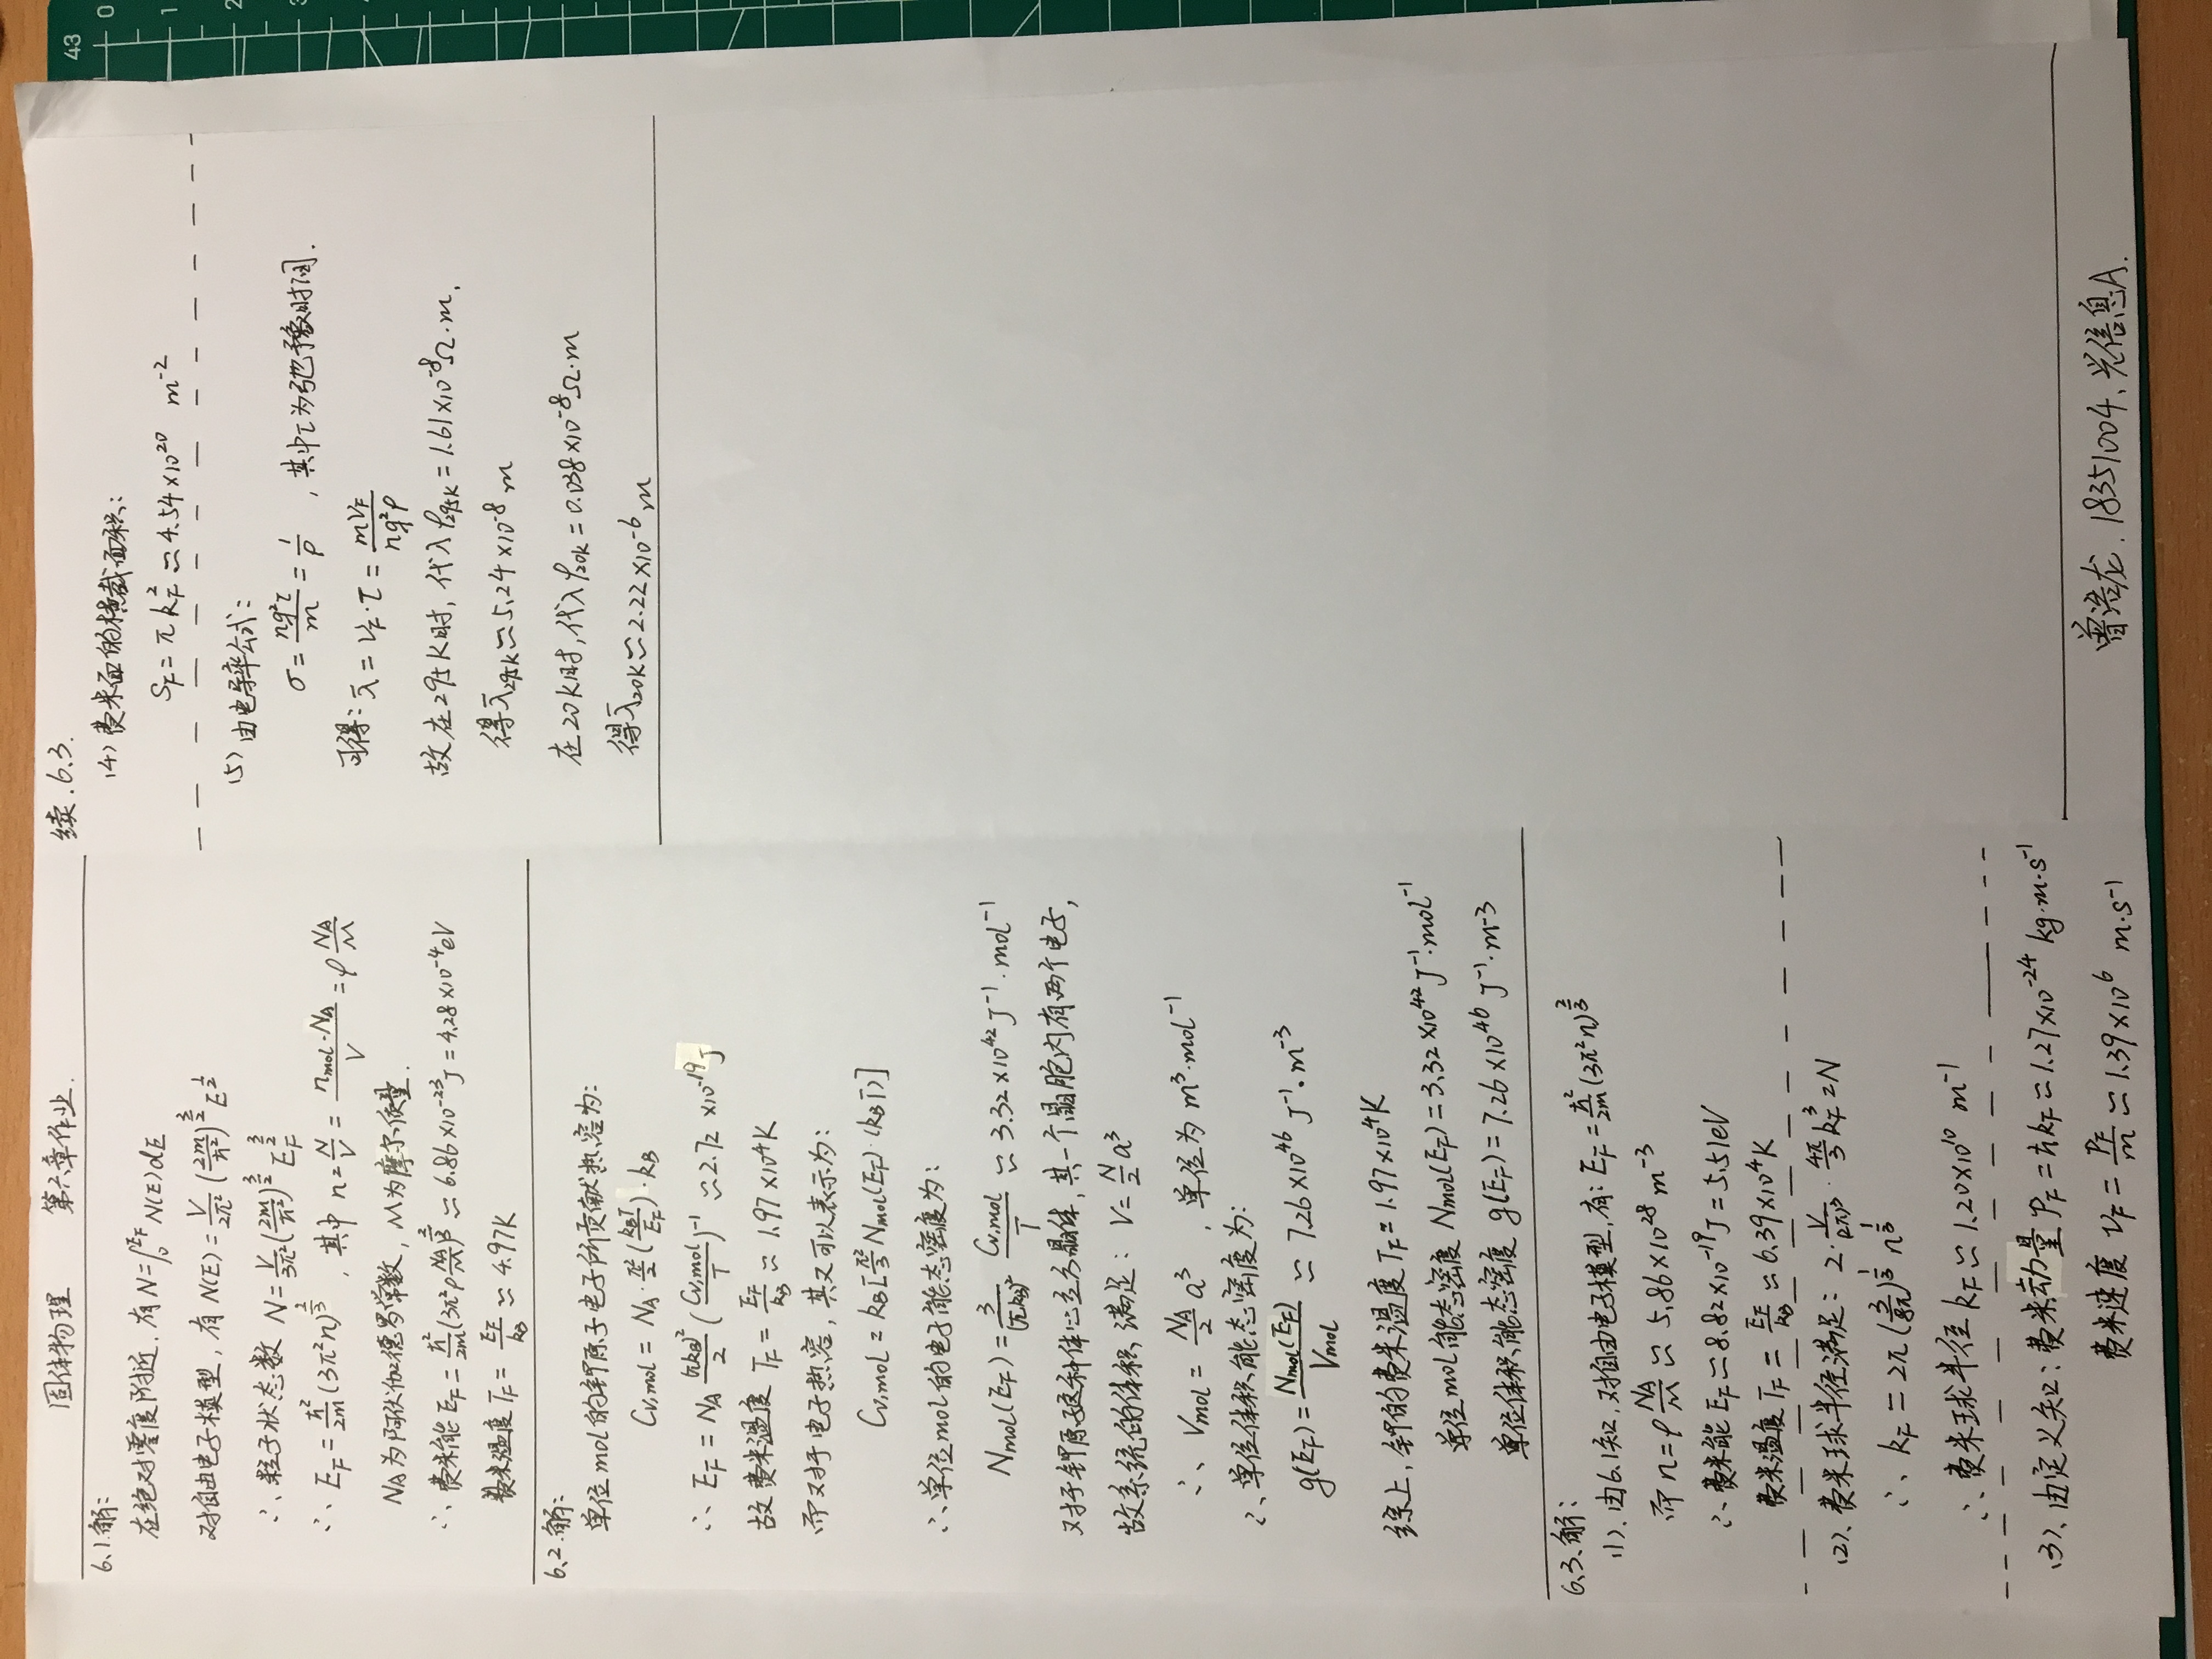 固体物理 第六章作业.
6.1.解:
在绝对零度附近, 有 N=∫₀^{E_F} N(E)dE
对自由电子模型, 有 N(E) = \frac{V}{2π²} (\frac{2m}{ħ²})^{\frac{3}{2}} E^{\frac{1}{2}}
∴ 粒子状态数 N = \frac{V}{3π²} (\frac{2m}{ħ²})^{\frac{3}{2}} E_F^{\frac{3}{2}}
∴ E_F = \frac{ħ²}{2m} (3π²n)^{\frac{2}{3}}, 其中 n = \frac{N}{V} = \frac{n_{mol}·N_A}{V} = ρ\frac{N_A}{M}
NA为阿伏伽德罗常数, M为摩尔质量.
∴ 费米能 E_F = \frac{ħ²}{2m} (3π²ρ\frac{N_A}{M})^{\frac{2}{3}} ≃ 6.86×10⁻²³J = 4.28×10⁻⁴eV
费米温度 T_F = \frac{E_F}{k_B} ≃ 4.97K
6.2.解:
单位mol的钾原子电子所贡献热容为:
C_{V,mol} = N_A·\frac{π²}{2}(\frac{k_BT}{E_F})·k_B
∴ E_F = N_A \frac{(πk_B)²}{2} (\frac{C_{V,mol}}{T})⁻¹ ≃ 2.72×10⁻¹⁹J
故费米温度 T_F = \frac{E_F}{k_B} ≃ 1.97×10⁴K
而对于电子热容, 其又可以表示为:
C_{V,mol} = k_B[\frac{π²}{3} N_{mol}(E_F)·(k_BT)]
∴单位mol的电子能态密度为:
N_{mol}(E_F) = \frac{3}{(πk_B)²} \frac{C_{V,mol}}{T} ≃ 3.32×10⁴² J⁻¹·mol⁻¹
对于钾原子这种体心立方晶体, 其一个晶胞内有两个电子,
故系统的体积满足: V = \frac{N}{2} a³
∴ V_{mol} = \frac{N_A}{2} a³, 单位为 m³·mol⁻¹
∴单位体积能态密度为:
g(E_F) = \frac{N_{mol}(E_F)}{V_{mol}} ≃ 7.26×10⁴⁶ J⁻¹·m⁻³
综上, 钾的费米温度 T_F = 1.97×10⁴K
单位mol能态密度 N_{mol}(E_F) = 3.32×10⁴² J⁻¹·mol⁻¹
单位体积能态密度 g(E_F) = 7.26×10⁴⁶ J⁻¹·m⁻³
6.3.解:
(1). 由6.1知, 对自由电子模型, 有: E_F = \frac{ħ²}{2m} (3π²n)^{\frac{2}{3}}
而 n = ρ\frac{N_A}{M} ≃ 5.86×10²⁸ m⁻³
∴ 费米能 E_F ≃ 8.82×10⁻¹⁹J = 5.51eV
费米温度 T_F = \frac{E_F}{k_B} ≃ 6.39×10⁴K
(2). 费米球半径满足: 2·\frac{V}{(2π)³}·\frac{4π}{3} k_F³ = N
∴ k_F = 2π (\frac{3}{8π})^{\frac{1}{3}} n^{\frac{1}{3}}
∴ 费米球半径 k_F ≃ 1.20×10¹⁰ m⁻¹
(3). 由定义知: 费米动量 P_F = ħk_F ≃ 1.27×10⁻²⁴ kg·m·s⁻¹
费米速度 v_F = \frac{P_F}{m} ≃ 1.39×10⁶ m·s⁻¹
续.6.3.
(4) 费米面的横截面积:
S_F = πk_F² ≃ 4.54×10²⁰ m⁻²
(5) 由电导率公式:
σ = \frac{nq²τ}{m} = \frac{1}{ρ}, 其中τ为弛豫时间.
可得: λ̄ = v_F·τ = \frac{mv_F}{nq²ρ}
故在295K时, 代入 ρ_{295K} = 1.61×10⁻⁸Ω·m,
得 λ̄_{295K} ≃ 5.24×10⁻⁸ m
在20K时, 代入 ρ_{20K} = 0.038×10⁻⁸Ω·m
得 λ̄_{20K} ≃ 2.22×10⁻⁶ m
曾浩龙. 18351004. 光信息A.
43
0
1
2
3